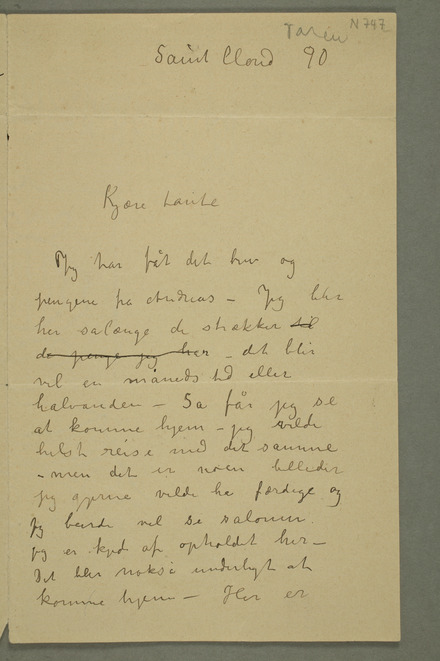 N 747
Saint Cloud 90
Kjære tante
Jeg har fåt dit brev og
pengene fra Andreas – Jeg blir
her salænge de strækker til
de penge jeg her – det blir
vel en måneds tid eller
halvanden – Så får jeg se
at komme hjem – jeg vilde
helst reise med det samme
– men det er noen billeder
jeg gjerne vilde ha færdige og
Jeg burde vel se salonen.
jeg er kjed af opholdet her –
Det blir nokså underligt at
komme hjem – Her er